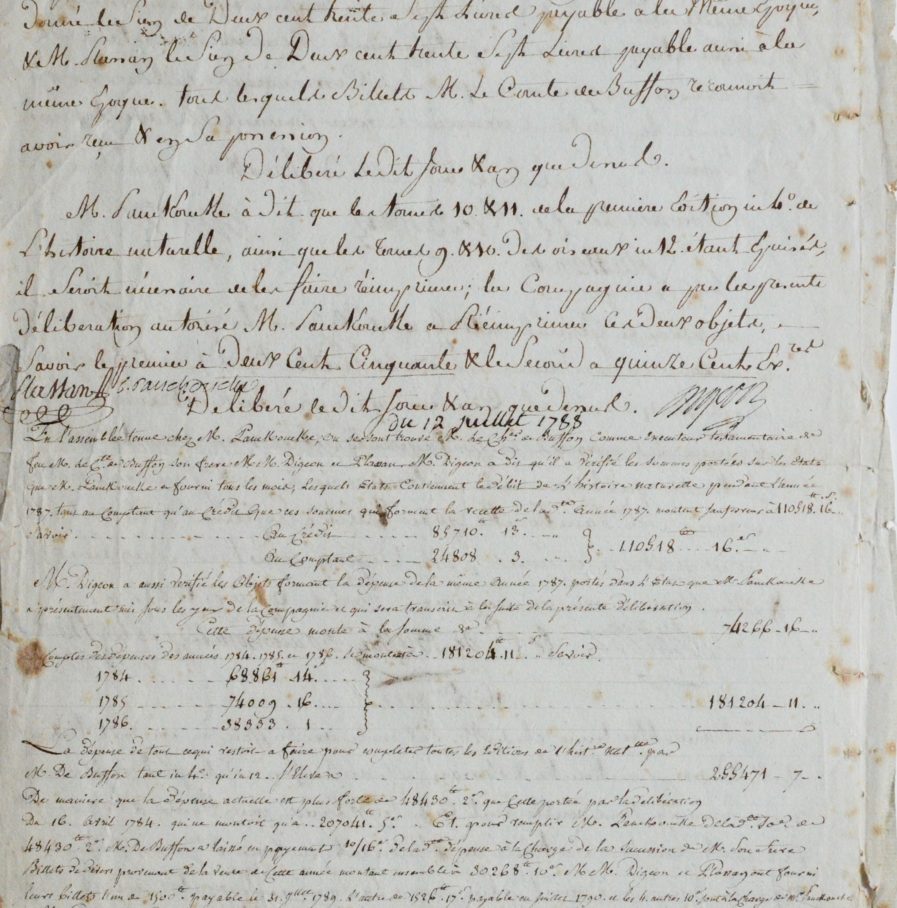 donné le sien de Deux cent trente Sept Livres payable à la même Epoque,
& M. Plassan le Sien de Deux cent trente Sept Livres payable aussi à la
même Epoque. tous lesquels Billets M. Le Comte de Buffon reconnoit
avoir reçu & en Sa possession.
Délibéré Ledit Jour & an que dessus.
M. Panckoucke à dit que les tomes 10. & 11. de la premiere Edition in 4º. de
L'histoire naturelle, ainsi que les tomes 9. & 10. des oiseaux in 12. étant Epuisés,
il Seroit nécessaire de les faire réimprimer; la Compagnie a par la presente
Déliberation autorisé M. Panckoucke a Réimprimer ces Deux objets,
Savoir le premier à Deux Cent Cinquante & le Second a quinze Cent Ex.res
Plassan C. Panckoucke
Délibéré ledit Jour & an que dessus.
du 12 Juillet 1788
En l'assemblée tenue chez M. Panckoucke, ou se sont trouvé M. le Ch.er de Buffon comme executeur testamentaire de
feu M. le C.te de Buffon son frere M.M. Digeon et Plassan, M. Digeon a dit qu'il a vérifié les sommes portées sur les Etats
que M. Panckoucke a fourni tous les mois, Lesquels Etats Contiennent le débit de L'histoire naturelle pendant l'année
1787. tant au Comptant qu'au Crédit que ces sommes qui forment la recette de la d.te année 1787. montent à 110518. 16
Savoir Au Crédit 85710.tt 13.s
Au Comptant 24808 . 3 . 110518.tt 16.s
M. Digeon a aussi verifié les objets formant la dépense de la même Année 1787. portés dans L'Etat que M. Panckoucke
a présentement mis sous les yeux de la Compagnie et qui sera transcrit à la suite de la présente délibération.
Cette dépense monte à la somme de 74266 - 16 -
Comptes des dépenses des années 1784. 1785. et 1786. 181204.tt 11.s Savoir.
1784 68861.tt 14
1785 74009 . 16 181204 - 11
1786 38333 . 1
La dépense de tout ce qui restoit a faire pour completter toutes les Editions de l'hist.re Nat.lle par
M. De Buffon tant in 4º. qu'in 12. 255471 - 7
De maniere que la dépense actuelle est plus forte de 48430.tt 2.s que Celle portée par la délibération
Du 16. avril 1784. qui ne montoit qu'a 207041.tt 5.s Et pour remplir M. Panckoucke de la d.te So.e de
48430.tt 2.s M. De Buffon a laissé en payement 10/16.es de la d.te dépense à la Charge de la Succession de M. son frere
Billets de divers provenant de la vente de Cette année montant ensemble à 30268.tt 10.s M.M. Digeon et Plassan ont fourni
leurs billets L'un de 1500.tt payable le 31. 1789. L'autre de 1526.tt 17.s payable en Juillet 1790. et les 4. autres 10.es sont à la Charge de M. Panckoucke